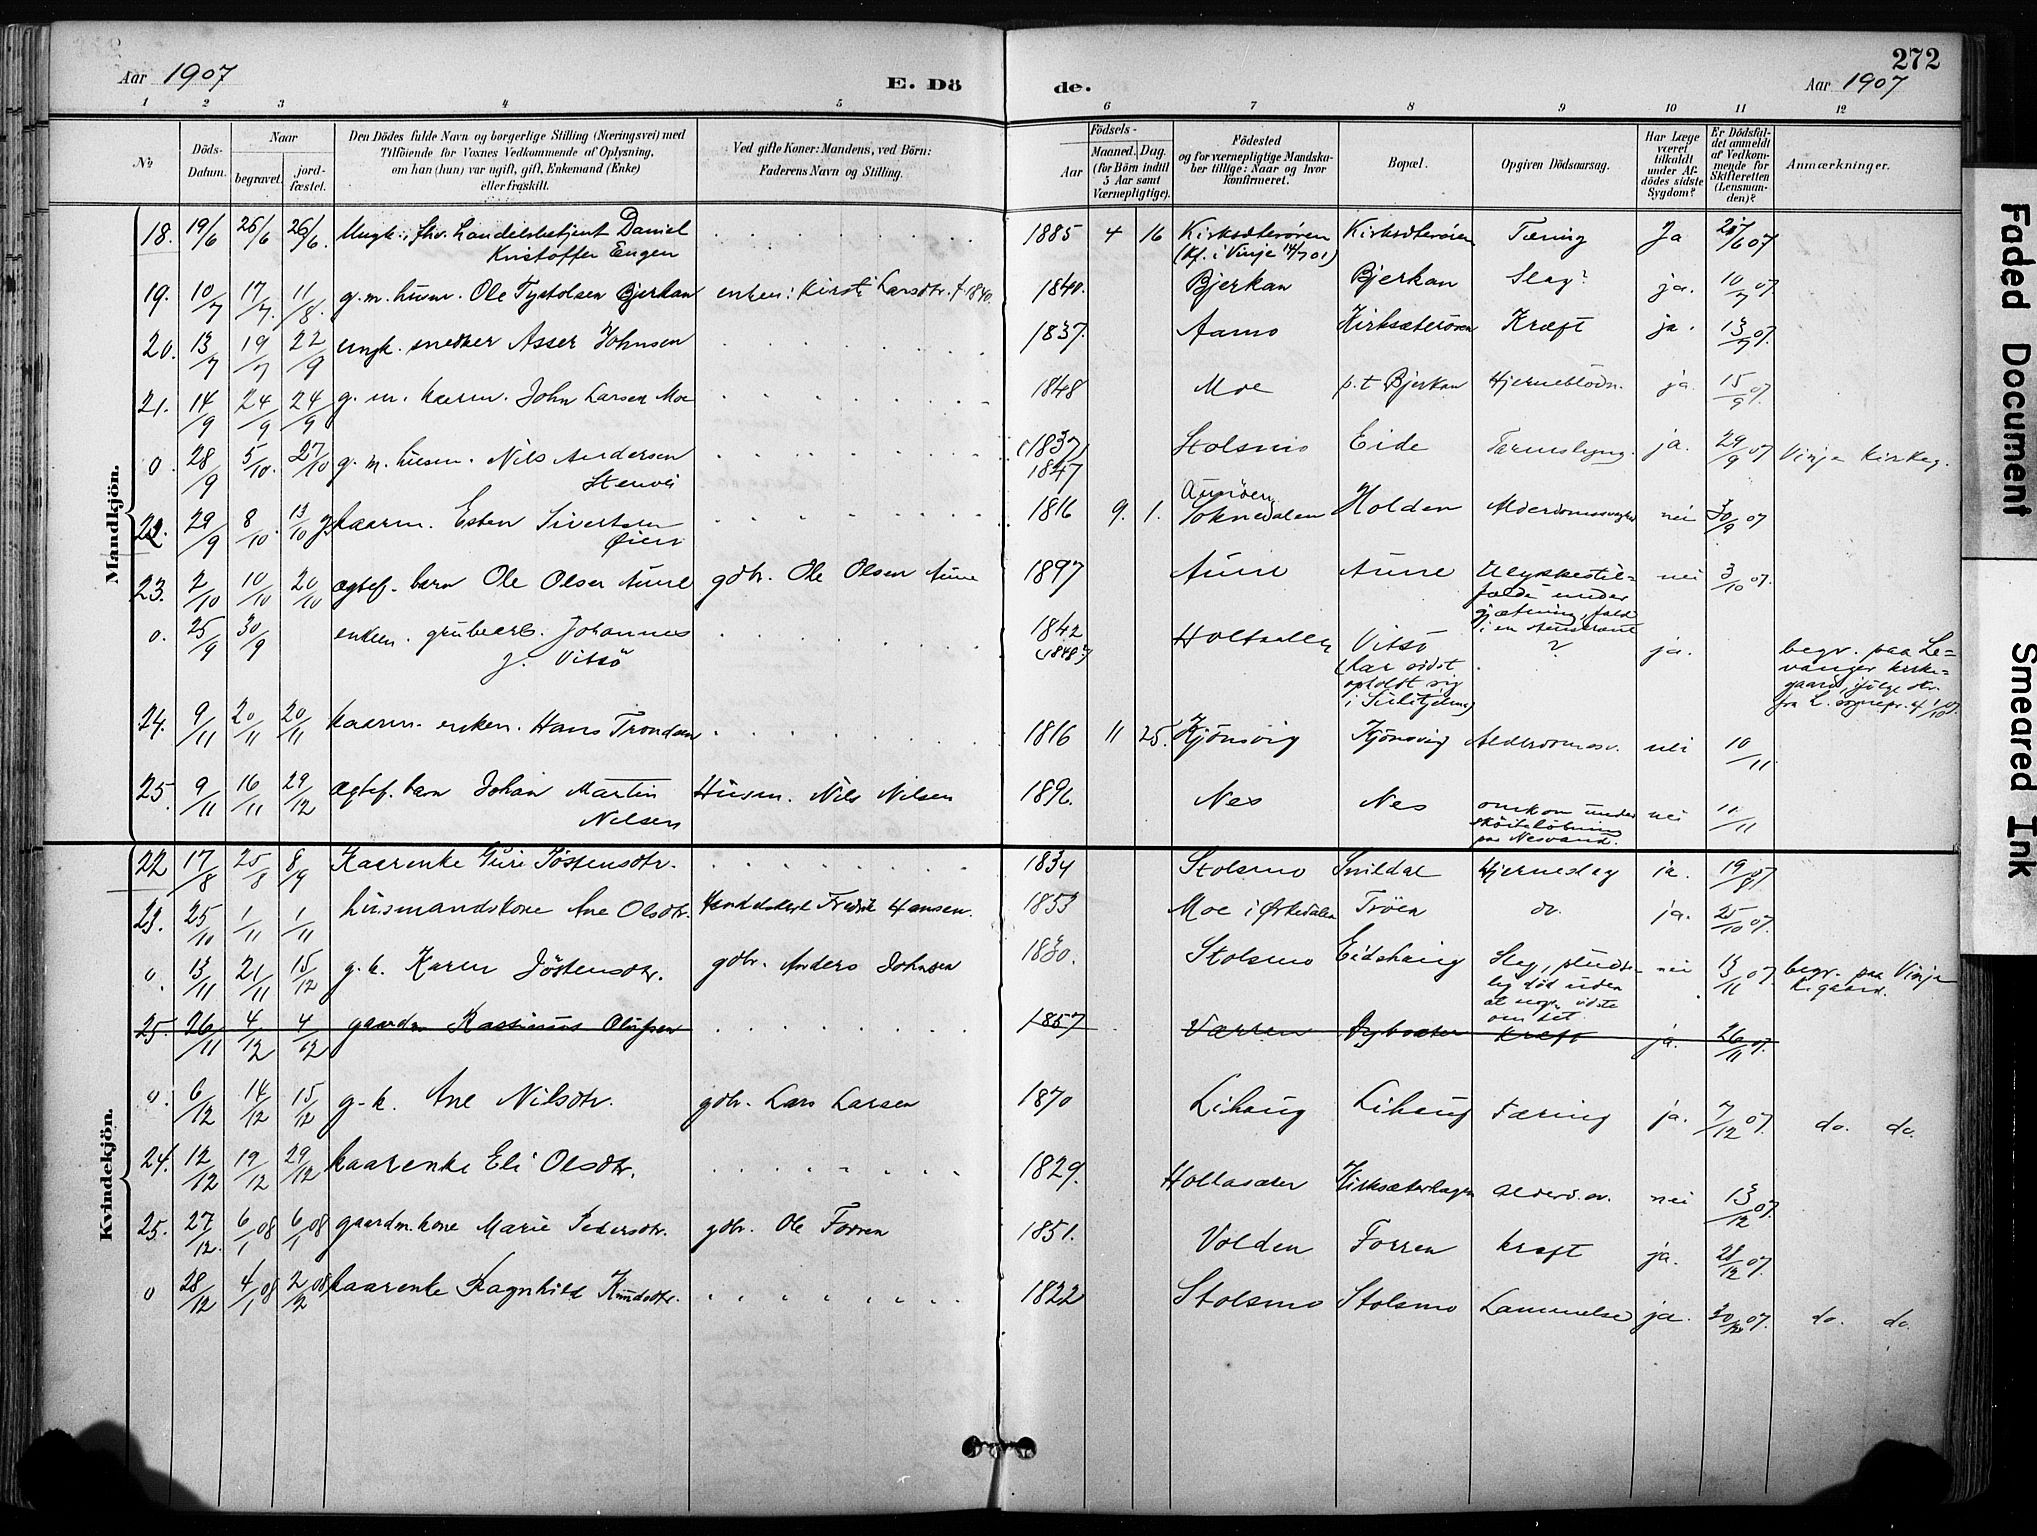 272
Aar 1907 E. Dö de. Aar 1907
1 2 3 4 5 6 7 8 9 10 11 12
No
Döds-Datum.
Naar
begravet.
jord-fæstet.
Den Dödes fulde Navn og borgerlige Stilling (Næringsvei) med
Tilföiende for Voxnes Vedkommende af Oplysning,
om han (hun) var ugift, gift, Enkemand (Enke)
eller fraskilt.
Ved gifte Koner: Mandens, ved Börn:
Faderens Navn og Stilling.
Födsels-
Aar
Maaned. Dag.
(for Börn indtil
5 Aar samt
Værnepligtige).
Födested
og for værnepligtige Mandska-
ber tillige: Naar og hvor
konfirmeret.
Bopæl.
Opgiven Dödsaarsag.
Har Læge
været
tilkaldt
under Af-
dödes sidste
Sygdom?
Er Dödsfal-
det anmeldt
af Vedkom-
mende for
Skifteretten
(Lensman-
den)?
Anmærkninger.
Mandkjön.
18. 19/6 26/6 26/6 Ungk., fhv. handelsbetjent Daniel 1885 4 16 Kirksæterøren Kirksæterøren Tæring Ja 21/6 07
Kristoffer Engen (kf. i Vinje 14/7 01)
19. 10/7 17/7 11/8 g.m. husm. Ole Bjerkan enken: Kirsti Larsdtr. f. 1840. 1840. Bjerkan Bjerkan Slag? ja. 10/7 07
20. 13/7 19/7 22/9 ungk. snedker Asser Johnsen 1837. Aamo Kirksæterøren Kræft ja. 13/7 07.
21. 14/9 24/9 24/9 g.m. kaarm. John Larsen Moe 1848 Moe p.t Bjerkan Hjerneblödn. ja. 15/9 07.
0. 28/9 5/10. 27/10 g.m. husm. Nils Andersen (1837) Stolsmo Eide ja. 29/9 07 Vinje kirkeg.
1847
22. 29/9 8/10. 13/10 kaarm. Esten Sivertsen 1816 9. 1. Soknedalen Holden nei 30/9 07
23. 2/10 10/10 20/10 ægtef. barn Ole Olsen Aune gdbr. Ole Olsen Aune 1897 Aune Aune Ulykkestil-
fælde under nei 3/10 07.
gjætning, fald
i en
0. 25/9 30/9 enkem. grubearb. Johannes 1842 Vitsö ? ja. begr. paa Le-
J. Vitsö (1848?) (har sidst vanger kirke-
opholdt sig gaard, ifølge
i Sulitjelma) fra L. sognepr. 4/10 07.
24. 9/11 20/11 20/11 kaarm. enkem. Hans Trondsen 1816 11 25. Kjönsvig Kjönsvig Alderdomssv. nei 10/11
25. 9/11 16/11 29/12 ægtef. barn Johan Martin Husm. Nils Nilsen 1896. Nes Nes omkom under nei 11/11
Nilsen skøiteløbning
paa Nesvand.
Kvindekjön.
22 17/8 25/8 8/9 Kaarenke Guri Jöstensdtr. 1834 Stolsmo Snildal Hjerneslag ja. 19/8 07
23. 25/10 1/11 1/11 husmandskone Ane Olsdtr. Fredrik Hansen. 1853 Moe i Ørkedalen Tröen do. ja. 25/10 07.
0. 13/11 21/11 15/12 g.k. Karen Jöstensdtr. gdbr. Anders Johnsen 1830. Stolsmo Eidshaug Slag, pludse-
lig død uden nei 13/11 07. begr. paa Vinje
at nogen vidste k.gaard.
om det.
25. 26/11 4/12 4/12 gaardm Rasmus Olufsen 1857 Værren Dybsæter kræft ja. 26/11 07.
0. 6/12 14/12 15/12 g.k. Ane Nilsdtr. gdbr. Lars Larsen 1870 Lihaug Lihaug Tæring ja. 7/12 07. do. do.
24. 12/12 19/12 29/12 kaarenke Eli Olsdtr. 1829. Hollasæter Kirksæterhagen alderd.sv. nei 13/12 07.
25. 27/12. 6/1 08 6/1 08 gaardm.kone Marie Pedersdtr. gdbr. Ole Forren 1851. Volden Forren kræft ja. 28/12 07.
0 28/12 4/1 08 2/2 08 kaarenke Ragnhild Knudsdtr. 1822 Stolsmo Stolsmo Lammelse ja. 30/12 07. do. do.
Faded Document
Smeared Ink